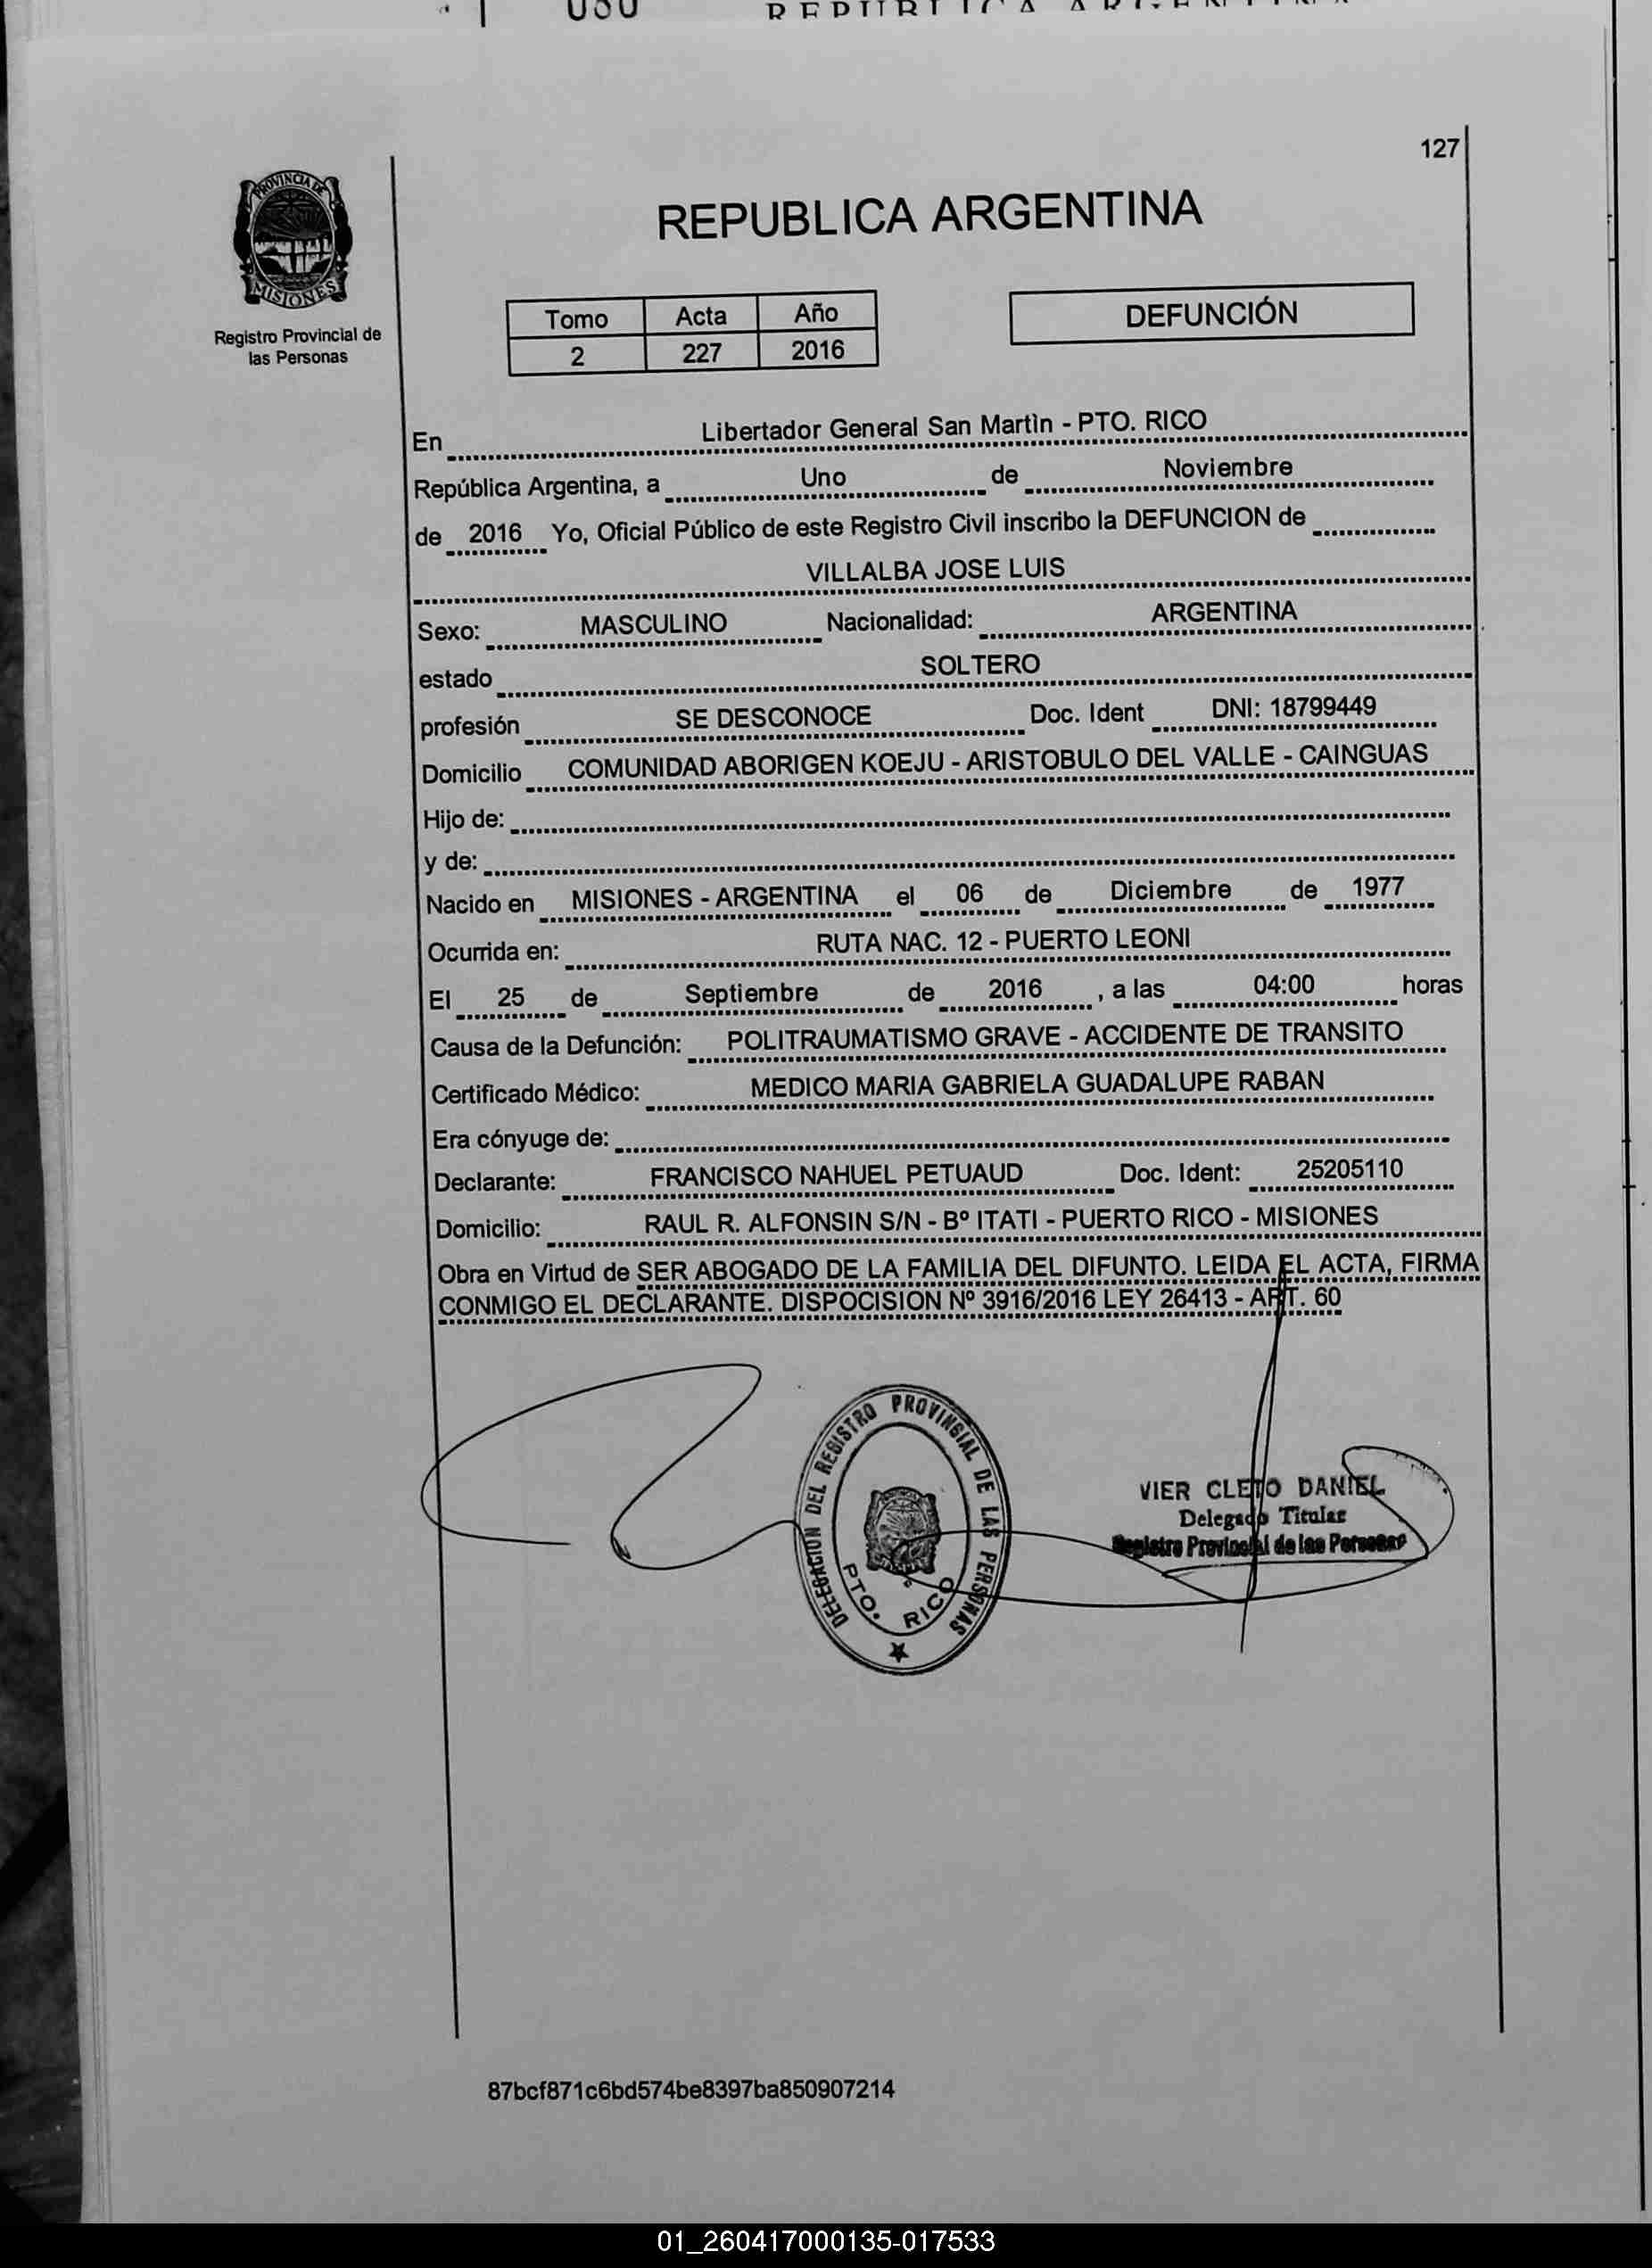 127
PROVINCIA DE
MISIONES
Registro Provincial de
las Personas
REPUBLICA ARGENTINA
Tomo Acta Año
2 227 2016
DEFUNCIÓN
En Libertador General San Martìn - PTO. RICO
República Argentina, a Uno de Noviembre
de 2016 Yo, Oficial Público de este Registro Civil inscribo la DEFUNCION de
VILLALBA JOSE LUIS
Sexo: MASCULINO Nacionalidad: ARGENTINA
estado SOLTERO
profesión SE DESCONOCE Doc. Ident DNI: 18799449
Domicilio COMUNIDAD ABORIGEN KOEJU - ARISTOBULO DEL VALLE - CAINGUAS
Hijo de:
y de:
Nacido en MISIONES - ARGENTINA el 06 de Diciembre de 1977
Ocurrida en: RUTA NAC. 12 - PUERTO LEONI
El 25 de Septiembre de 2016 , a las 04:00 horas
Causa de la Defunción: POLITRAUMATISMO GRAVE - ACCIDENTE DE TRANSITO
Certificado Médico: MEDICO MARIA GABRIELA GUADALUPE RABAN
Era cónyuge de:
Declarante: FRANCISCO NAHUEL PETUAUD Doc. Ident: 25205110
Domicilio: RAUL R. ALFONSIN S/N - Bº ITATI - PUERTO RICO - MISIONES
Obra en Virtud de SER ABOGADO DE LA FAMILIA DEL DIFUNTO. LEIDA EL ACTA, FIRMA
CONMIGO EL DECLARANTE. DISPOCISION Nº 3916/2016 LEY 26413 - ART. 60
DELEGACION DEL REGISTRO PROVINCIAL DE LAS PERSONAS
PTO. RICO
VIER CLETO DANIEL
Delegado Titular
Registro Provincial de las Personas
87bcf871c6bd574be8397ba850907214
01_260417000135-017533